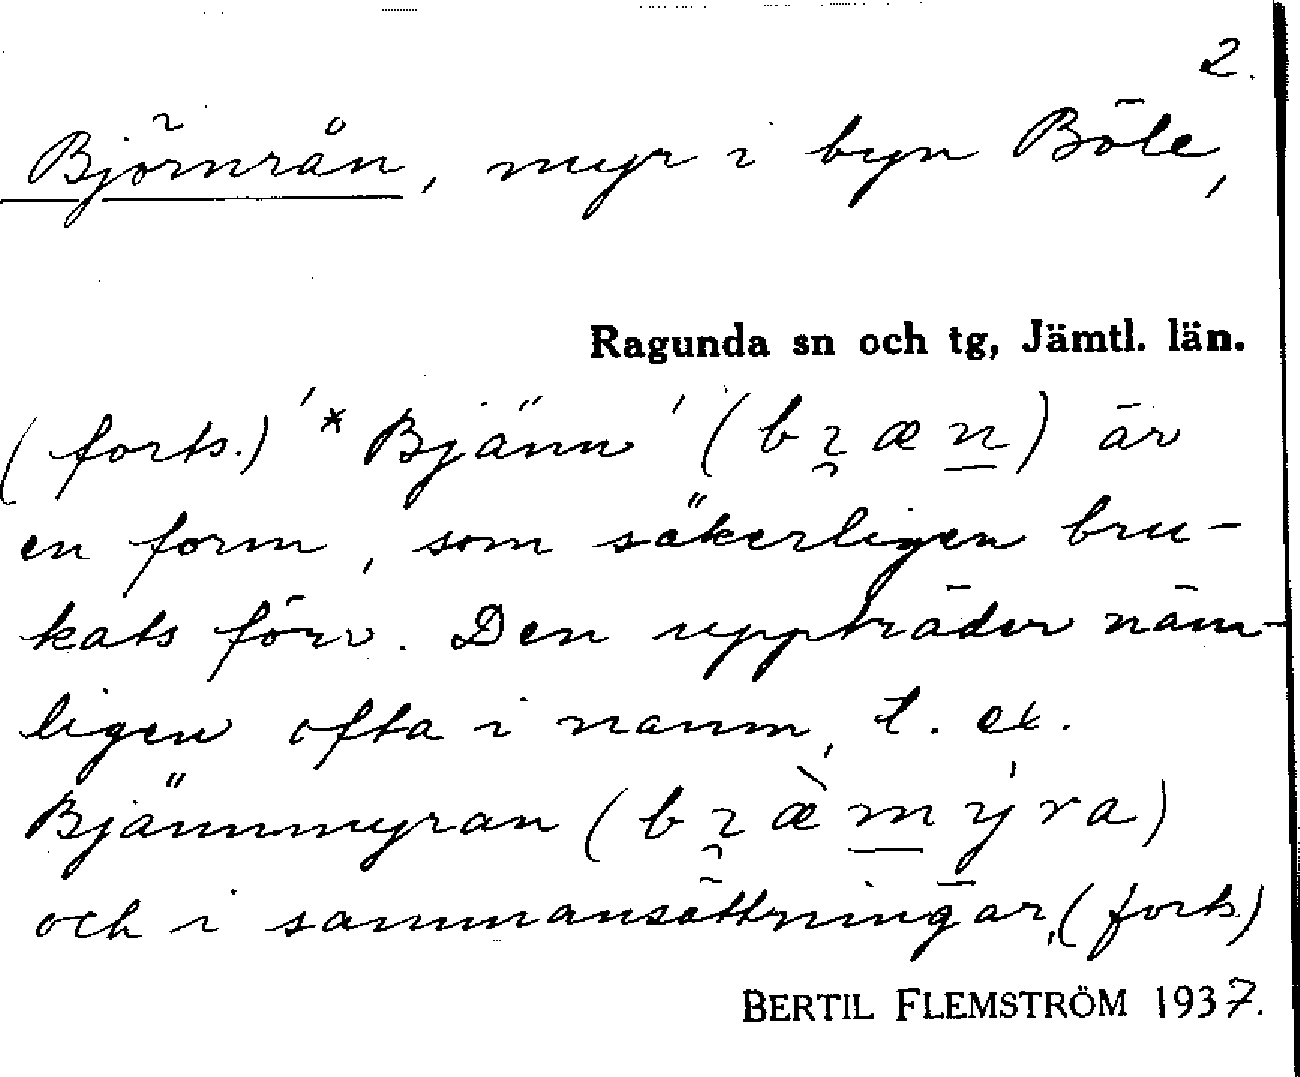 2.
Björnrån, myr i byn Böle,
Ragunda sn och tg, Jämtl. län.
(forts.) '*Bjänn' (bı̯æn̲) är
en form, som säkerligen bru-
kats förr. Den uppträder näm-
ligen ofta i namn, t. ex.
Bjännmyran (bı̯æ̀m̲ýra)
och i sammansättningar, (forts.)
BERTIL FLEMSTRÖM 1937.